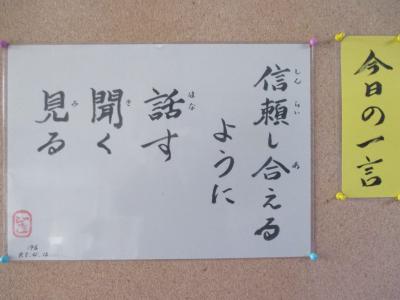 今日の一言
信頼し合える
ように
話す
聞く
見る